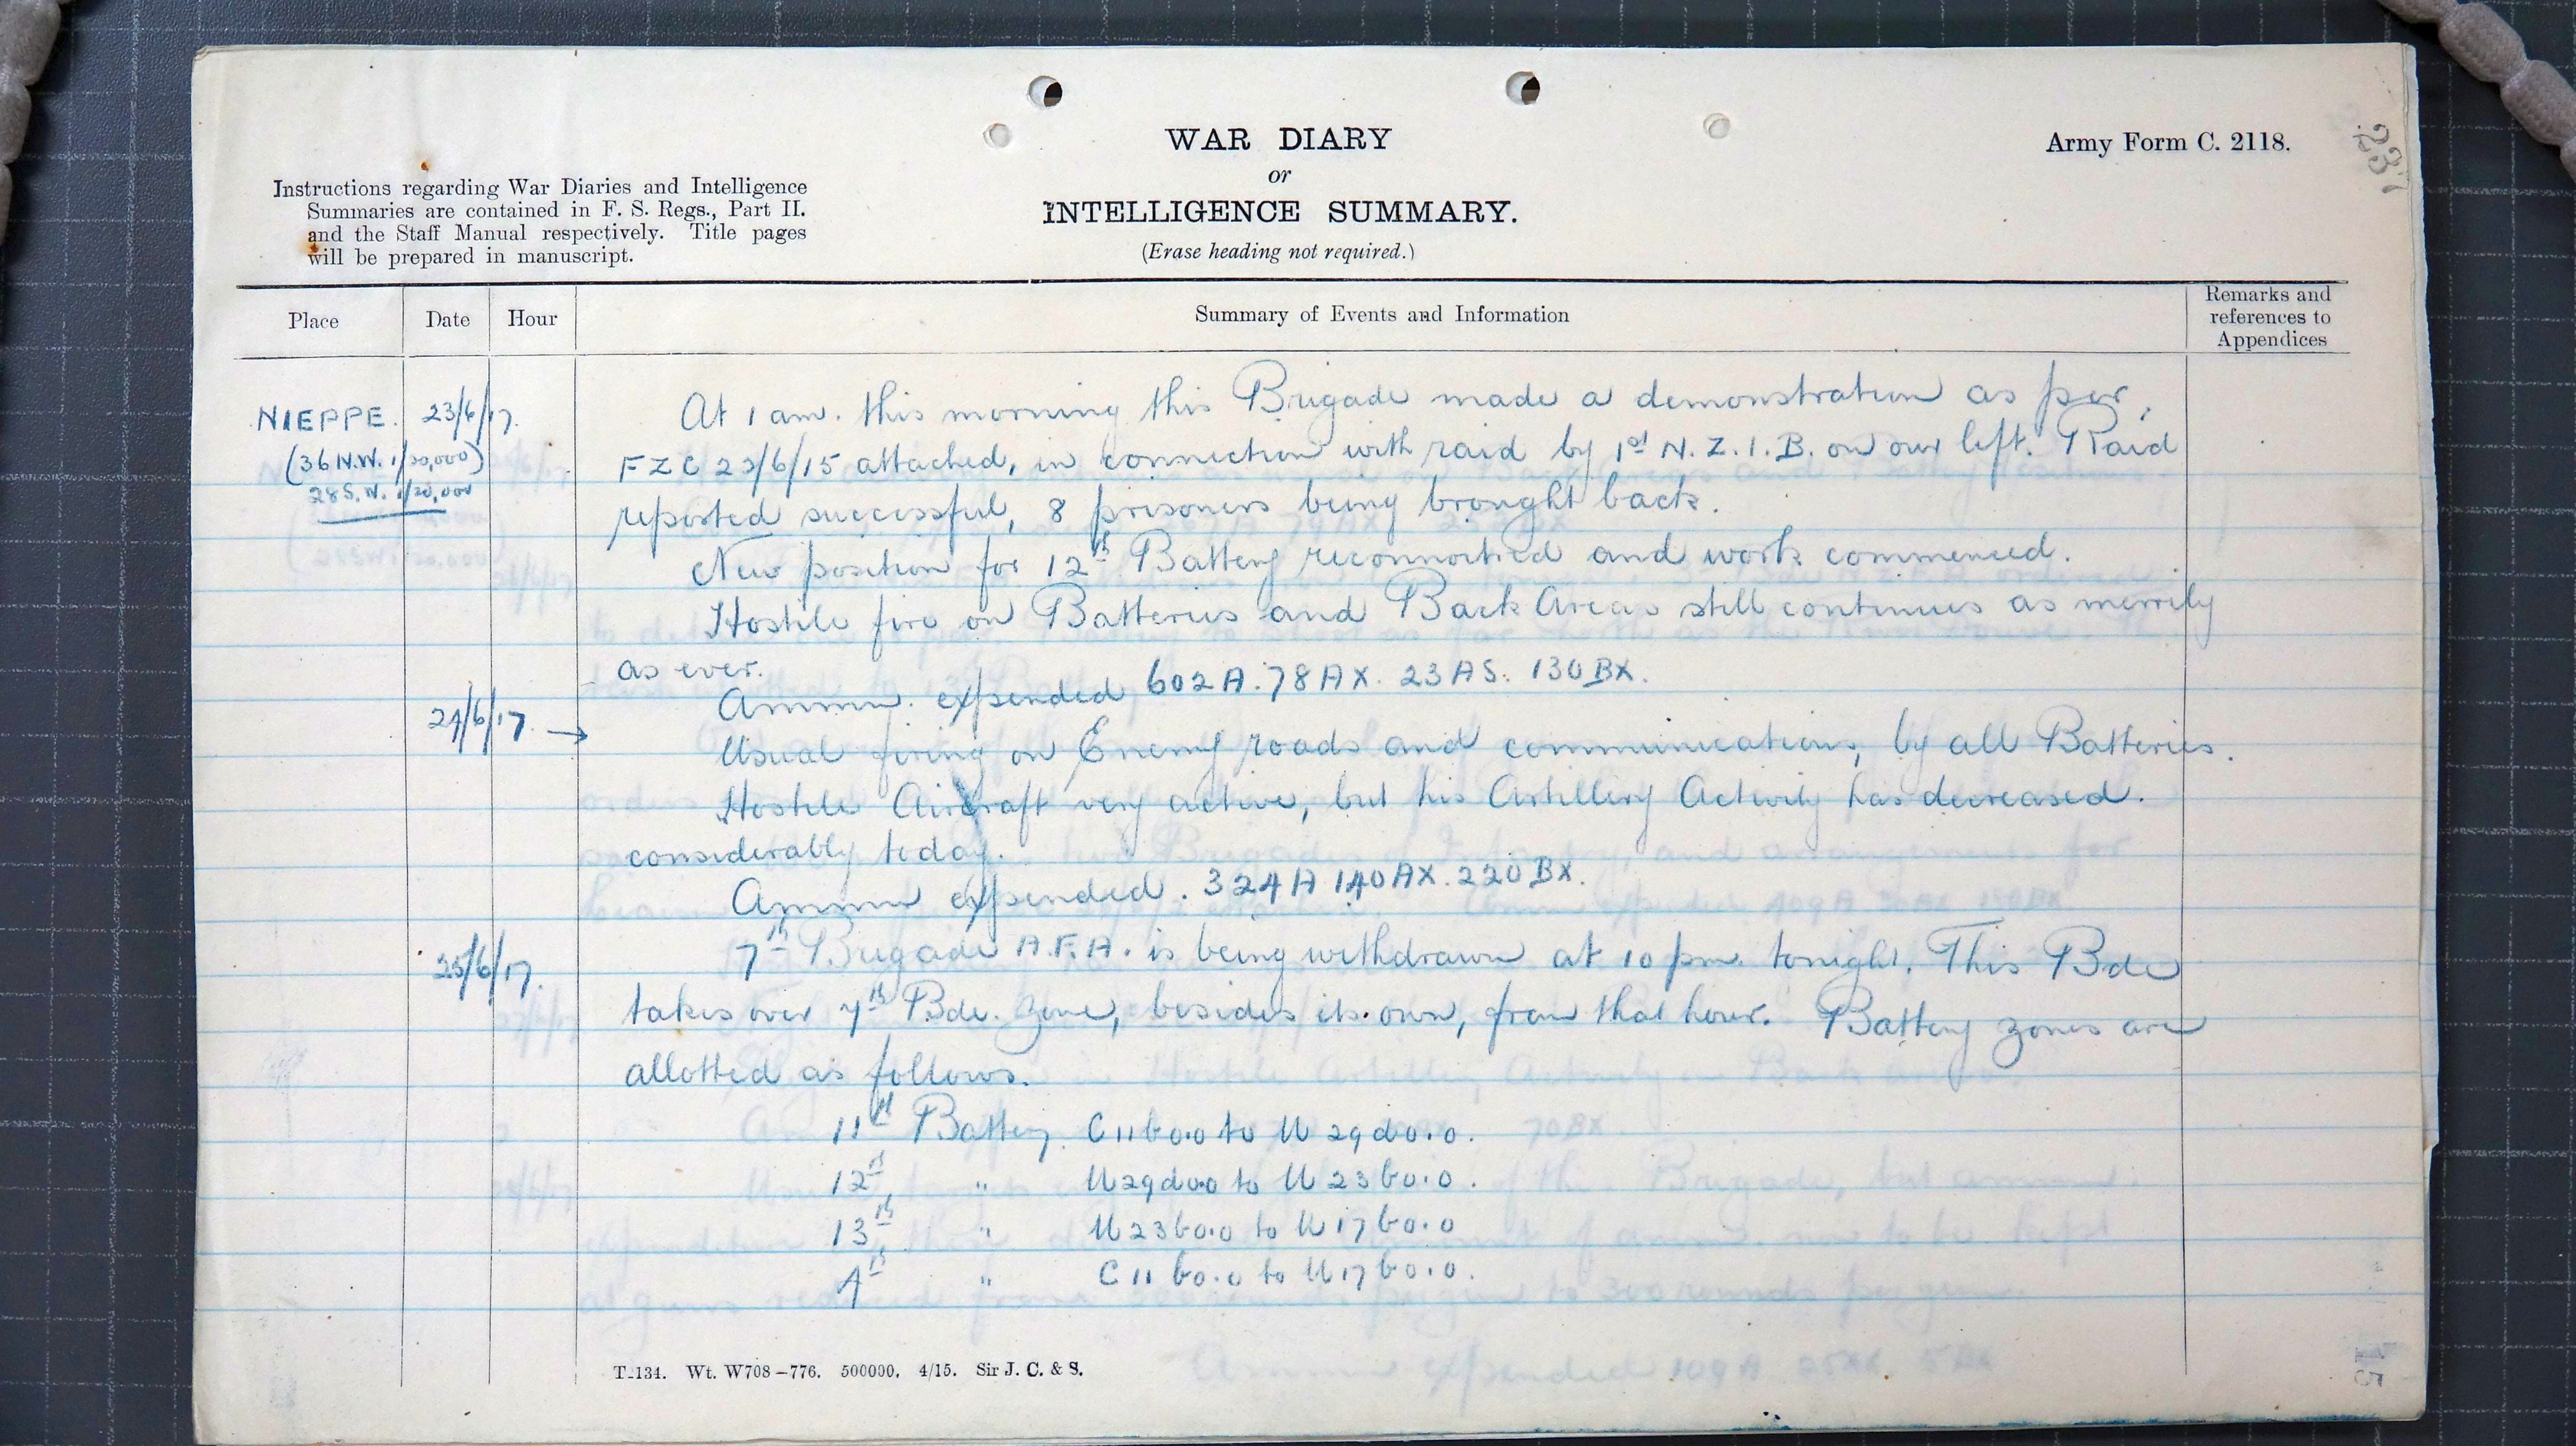 WAR DIARY
or
INTELLIGENCE SUMMARY.
(Erase heading not required.)
Army Form C. 2118.
Instructions regarding War Diaries and Intelligence
Summaries are contained in F. S. Regs., Part II.
and the Staff Manual respectively. Title pages
will be prepared in manuscript.
Place Date Hour Summary of Events and Information Remarks and references to Appendices
NIEPPE. 23/6/17.
(36 N.W. 1/20,000)
28 S.W. 1/20,000
At 1 am. this morning this Brigade made a demonstration as per,
FZC 23/6/15 attached, in connection with raid by 1st N.Z.I.B. on our left. Raid
reported successful, 8 prisoners being brought back.
New position for 12th Battery reconnoitred and work commenced.
Hostile fire on Batteries and Back Areas still continues as merrily
as ever.
Ammn. expended 602 A. 78 AX. 23 AS. 130 BX.
24/6/17. →
Usual firing on Enemy roads and communications, by all Batteries.
Hostile Aircraft very active, but his Artillery Activity has decreased.
considerably today.
Ammn expended. 324 A 140 AX. 220 BX.
25/6/17.
7th Brigade A.F.A. is being withdrawn at 10 pm. tonight. This Bde
takes over 7th Bde. zone, besides its own, from that hour. Battery zones are
allotted as follows.
11th Battery. C 11 b 0.0 to U 29 d 0.0.
12th " U 29 d 0.0 to U 23 b 0.0.
13th " U 23 b 0.0 to U 17 b 0.0
4th " C 11 b 0.0 to U 17 b 0.0.
T.134. Wt. W708–776. 500000. 4/15. Sir J. C. & S.